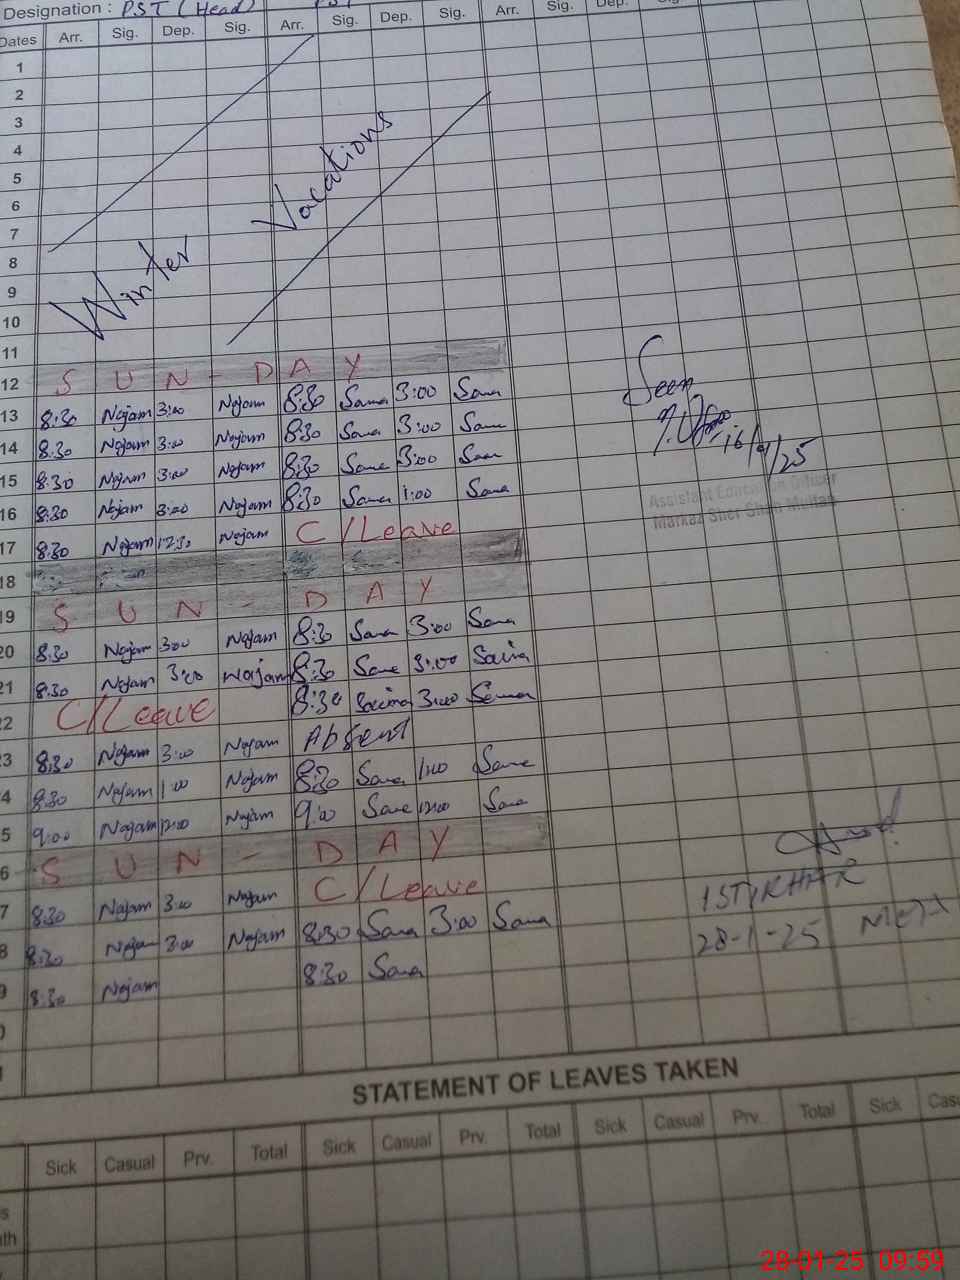 Designation : PST (Head)
Dates Arr. Sig. Dep. Sig. Arr. Sig. Dep. Sig. Arr. Sig. Dep.
1
2
3
4
5
6
7
8
9
10
Winter Vacations
11
12 SUN-DAY
13 8:30 Najam 3:00 Najam 8:30 Sana 3:00 Sana
14 8:30 Najam 3:00 Najam 8:30 Sana 3:00 Sana
15 8:30 Najam 3:00 Najam 8:30 Sana 3:00 Sana
16 8:30 Najam 3:00 Najam 8:30 Sana 1:00 Sana
17 8:30 Najam 12:30 Najam C/Leave
18
19 SUN-DAY
20 8:30 Najam 3:00 Najam 8:30 Sana 3:00 Sana
21 8:30 Najam 3:00 Najam 8:30 Sana 3:00 Saima
22 C/Leave 8:30 Saima 3:00
3 8:30 Najam 3:00 Najam Absent
4 8:30 Najam 1:00 Najam 8:30 Sana 1:00 Sana
5 9:00 Najam 12:00 Najam 9:00 Sana 12:00 Sana
6 SUN-DAY
7 8:30 Najam 3:00 Najam C/Leave
8 8:30 Najam 3:00 Najam 8:30 Sana 3:00 Sana
9 8:30 Najam 8:30 Sana
Seen
16/01/25
Assistant Education Officer
Markaz Sher Shah Multan
28-1-25
STATEMENT OF LEAVES TAKEN
Sick Casual Prv. Total Sick Casual Prv. Total Sick Casual Prv. Total Sick Casu
28-01-25 09:59